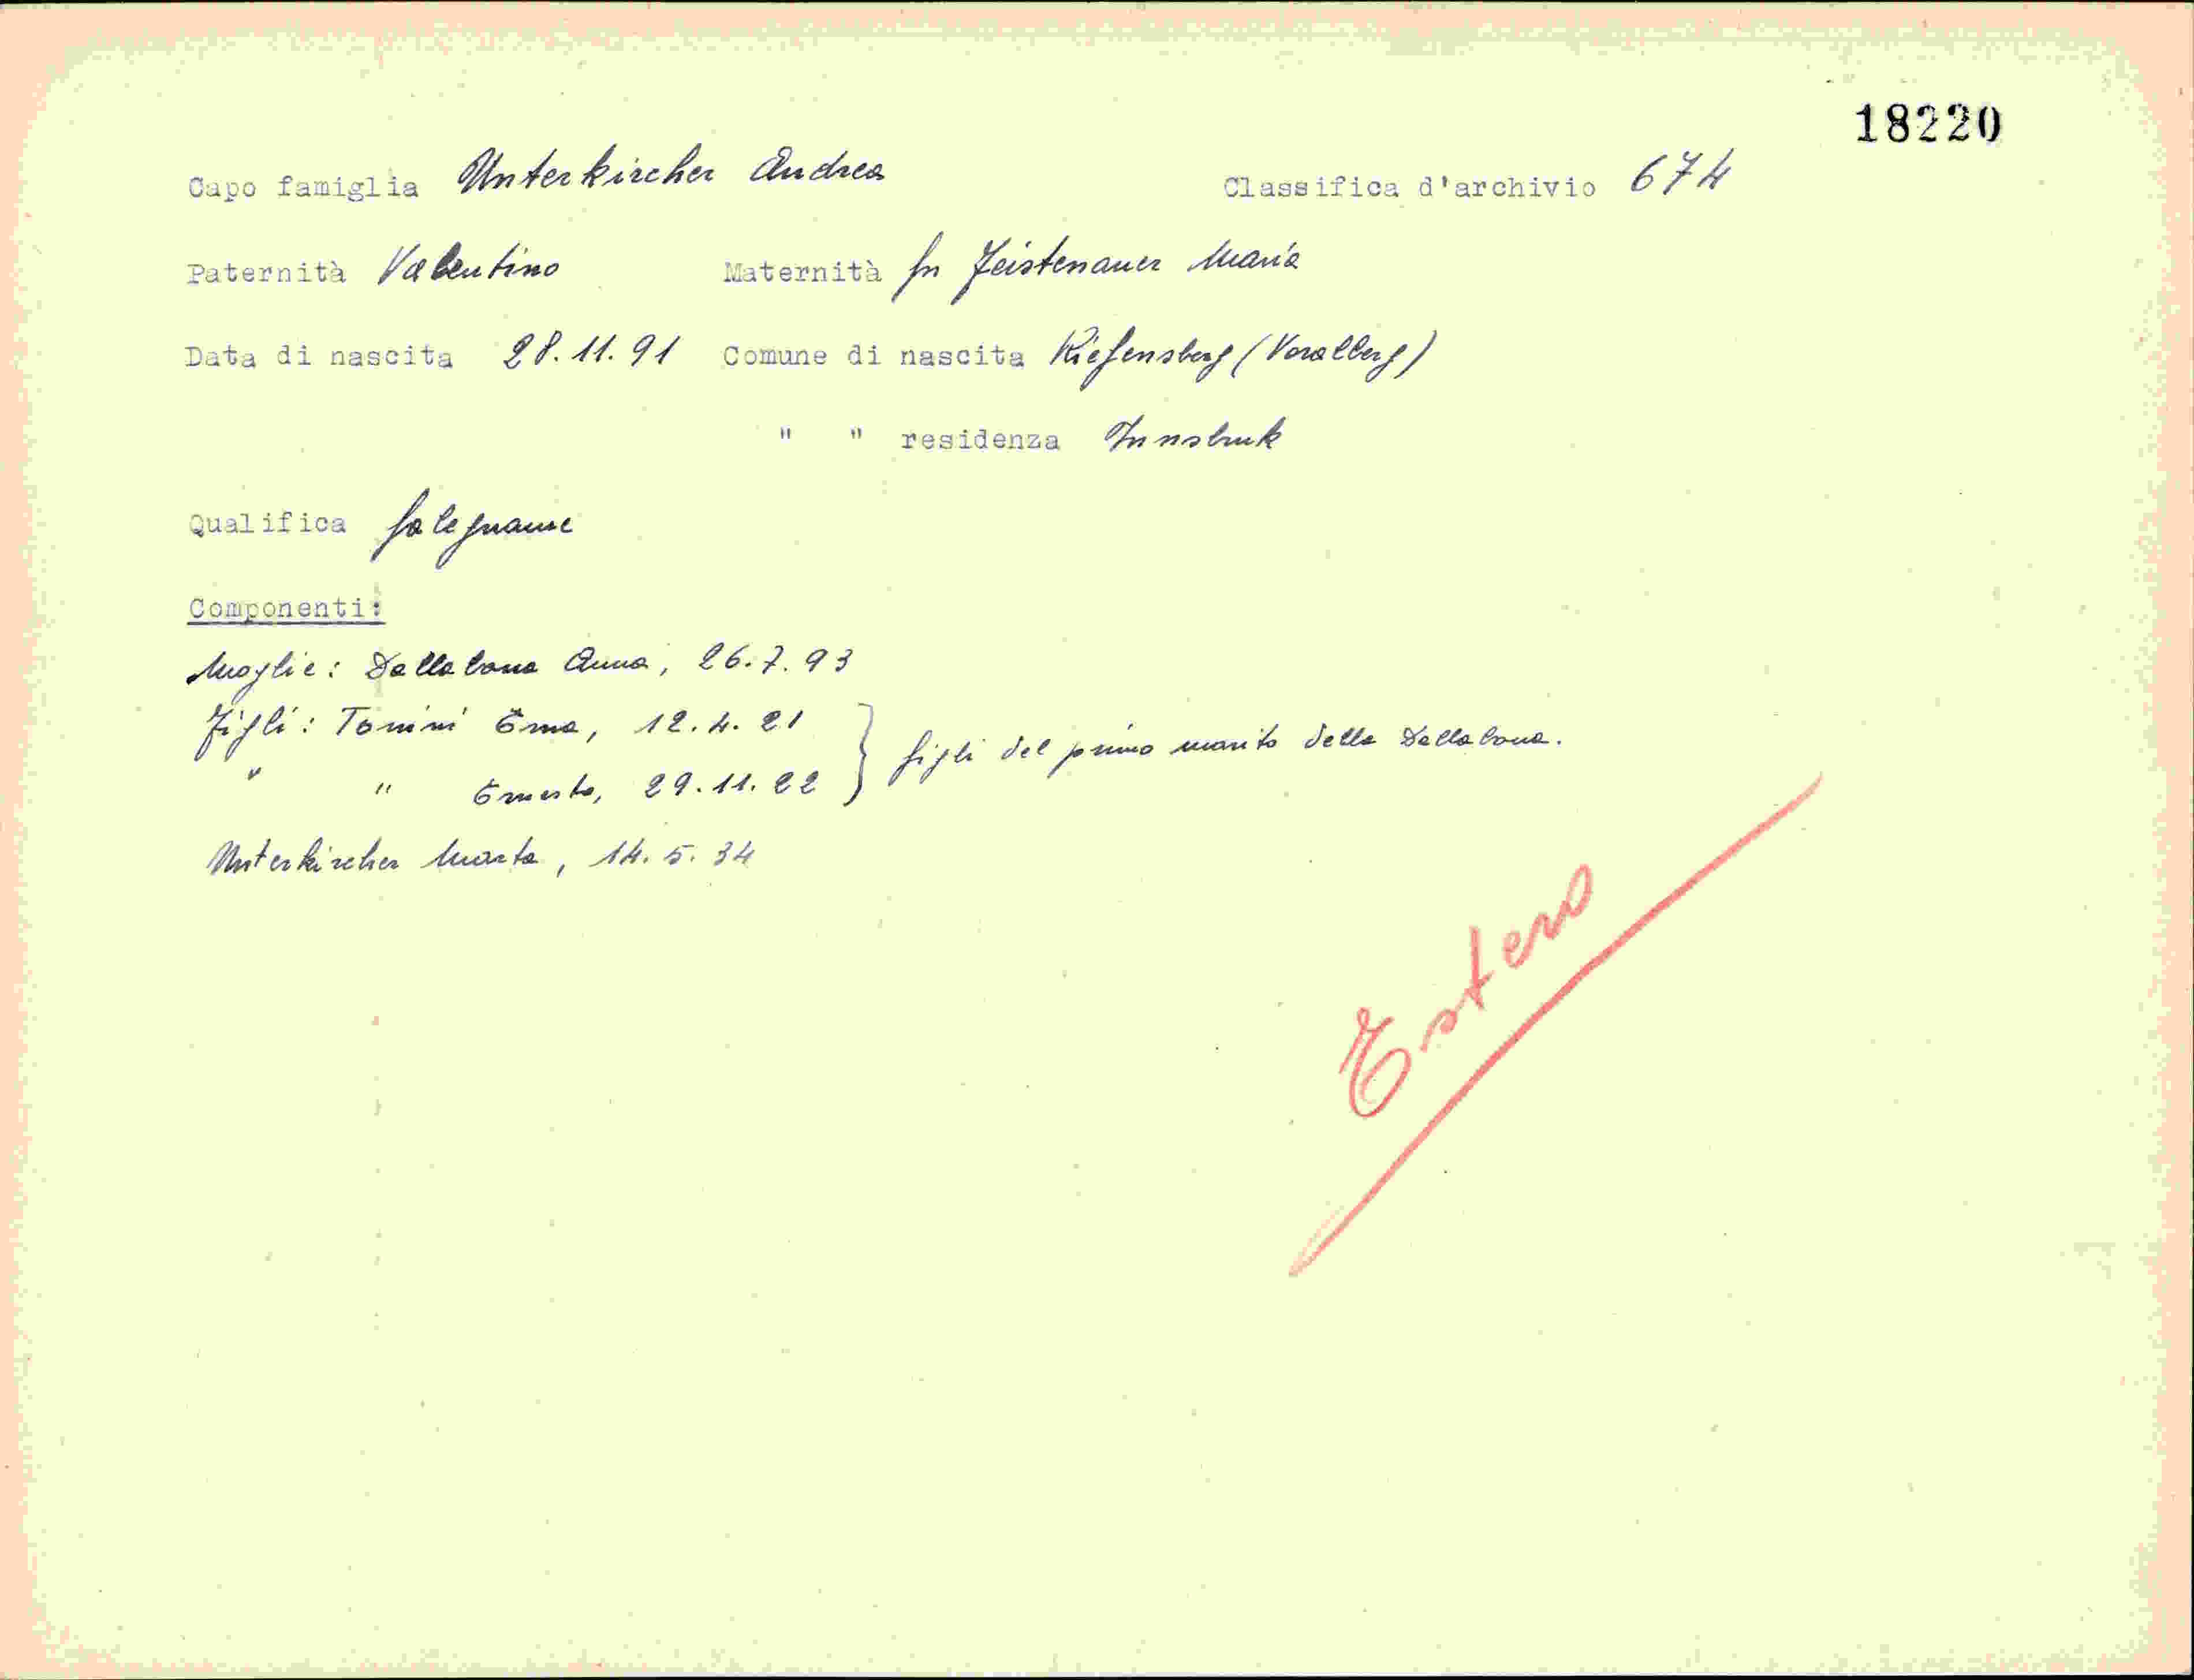 18220
Capo famiglia Unterkircher Andrea Classifica d'archivio 674
Paternità Valentino Maternità fu Feistenauer Maria
Data di nascita 28.11.91 Comune di nascita Riefensberg (Voralberg)
" " residenza Innsbruk
Qualifica falegname
Componenti:
Moglie: Dallabona Anna, 26.7.93
Figli: Tonini Erna, 12.4.21
" " Ernesto, 29.11.22 } figli del primo marito della Dallabona.
Unterkircher Marta, 14.5.34
Estero